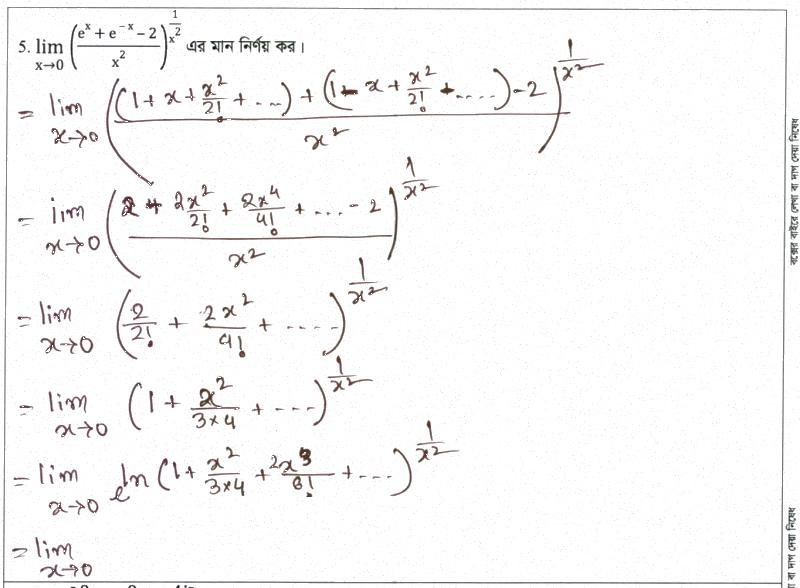 5. lim x→0 ((e^x + e^-x − 2)/x²)^(1/x²) এর মান নির্ণয় কর।
= lim x→0 (((1 + x + x²/2! + ...) + (1 - x + x²/2! + ....) - 2)/x²)^(1/x²)
= lim x→0 ((2 + 2x²/2! + 2x⁴/4! + ... - 2)/x²)^(1/x²)
= lim x→0 (2/2! + 2x²/4! + ....)^(1/x²)
= lim x→0 (1 + x²/3×4 + ...)^(1/x²)
= lim x→0 e^ln (1 + x²/3×4 + 2x³/6! + ...)^(1/x²)
= lim x→0
বক্সের বাইরে লেখা বা দাগ দেয়া নিষেধ
বা দাগ দেয়া নিষেধ